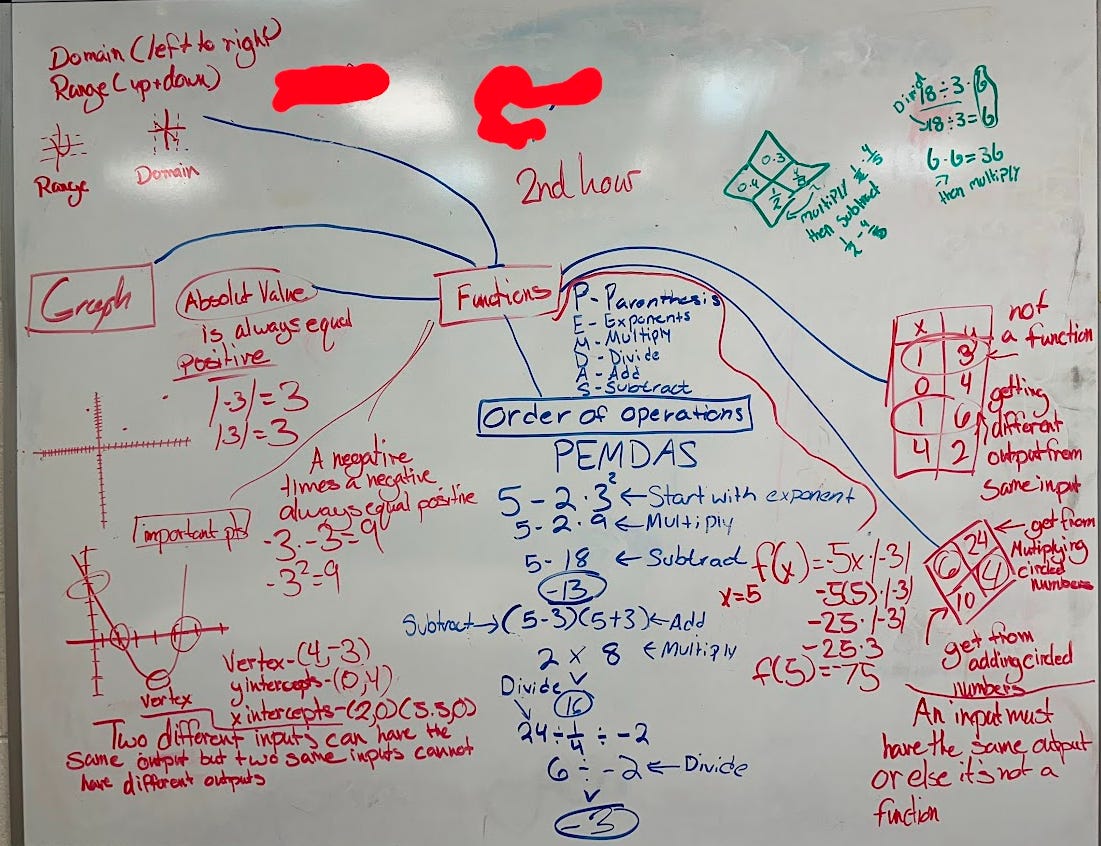 Domain (left to right)
Range (up+down)
Range
Domain
2nd hour
18÷3·6
18÷3=6
6·6=36
then multiply
0.3
0.4
4/5
1/2
multiply 1/2 · 4/5
then subtract
1/2 - 4/5
Graph
Absolut Value
is always equal
positive
|-3|=3
|3|=3
Functions
P- Paranthesis
E- Exponents
M- Multiply
D- Divide
A- Add
S- Subtract
Order of operations
PEMDAS
5-2·3²←Start with exponent
5-2·9←Multiply
5-18 ←Subtrad
-13
Subtract→(5-3)(5+3)←Add
2 x 8 ←Multiply
16
Divide
24÷1/4÷-2
6÷-2←Divide
-3
A negative
times a negative
always equal positive
-3·-3=9
-3²=9
important pts
vertex
Vertex-(4,-3)
y intercepts-(0,4)
x intercepts-(2,0)(5.5,0)
Two different inputs can have the
same output but two same inputs cannot
have different outputs
f(x)=-5x·|-3|
x=5
-5(5)·|-3|
-25·|-3|
-25·3
f(5)=-75
x y
1 3
0 4
1 6
4 2
not
a function
getting
different
output from
same input
24
6 4
10
←get from
Mutiplying
circled
numbers
get from
adding circled
numbers
An input must
have the same output
or else it's not a
function